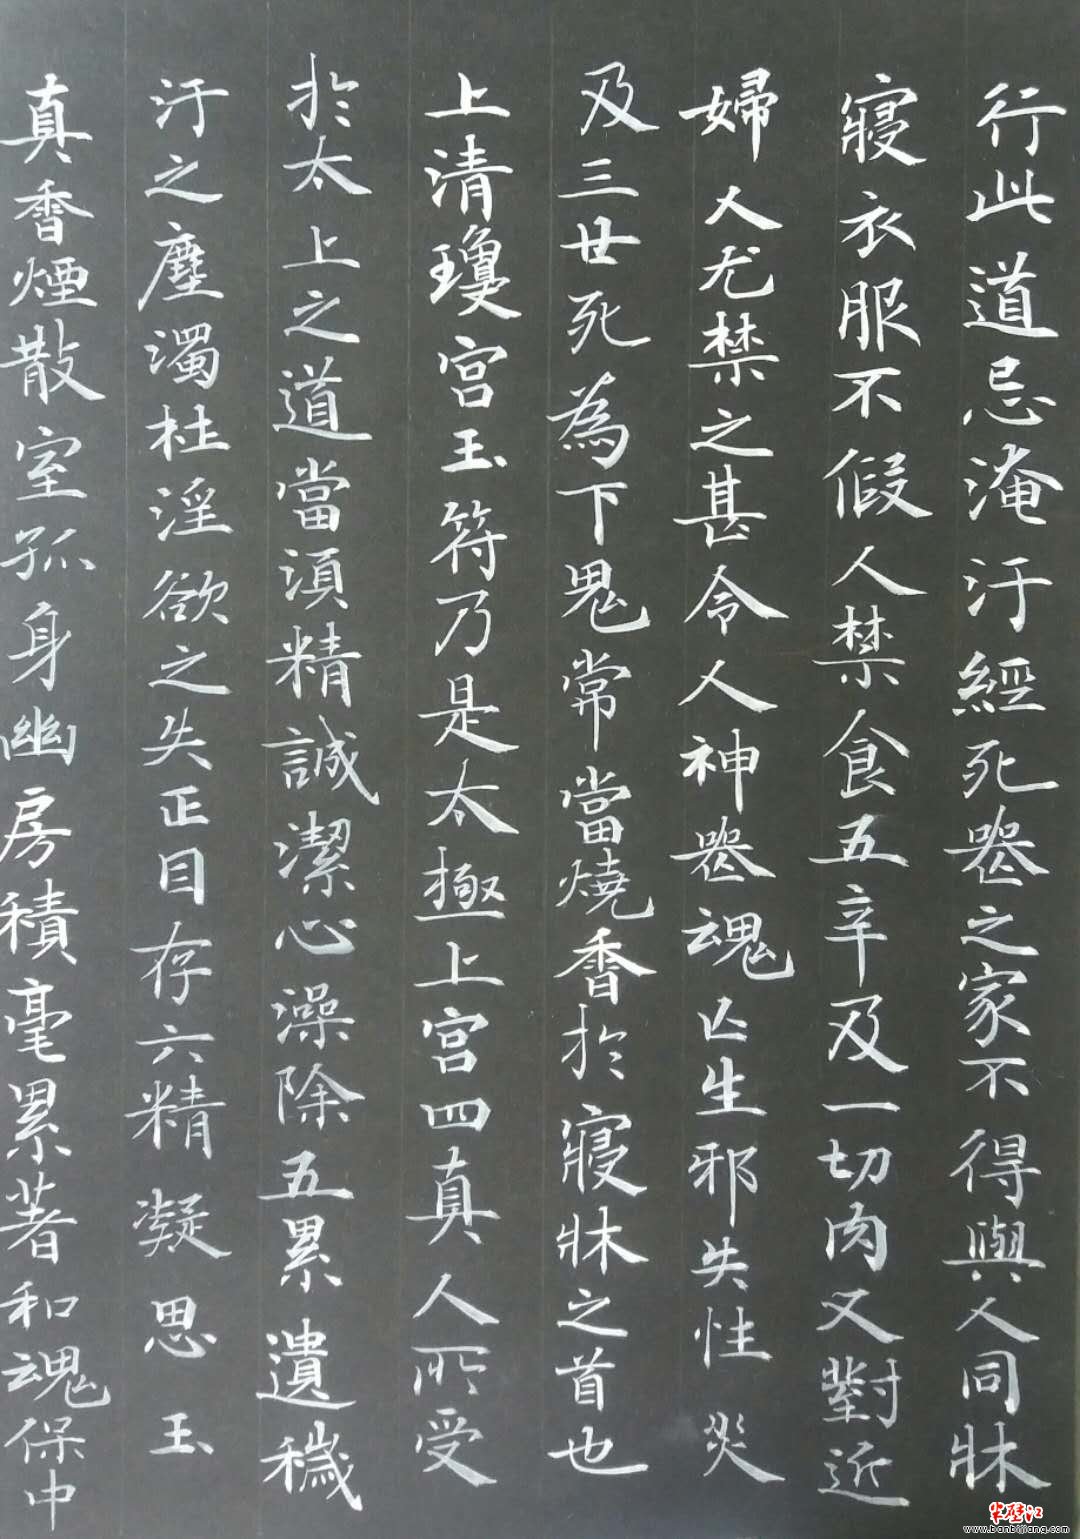 行此道忌淹汙經死喪之家不得與人同牀
寢衣服不假人禁食五辛及一切肉又對近
婦人尤禁之甚令人神喪魂亡生邪失性災
及三世死為下鬼常當燒香於寢牀之首也
上清瓊宮玉符乃是太極上宮四真人所受
於太上之道當須精誠潔心澡除五累遺穢
汙之塵濁杜淫欲之失正目存六精凝思玉
真香煙散室孤身幽房積毫累著和魂保中
半壁江
www.banbijiang.com